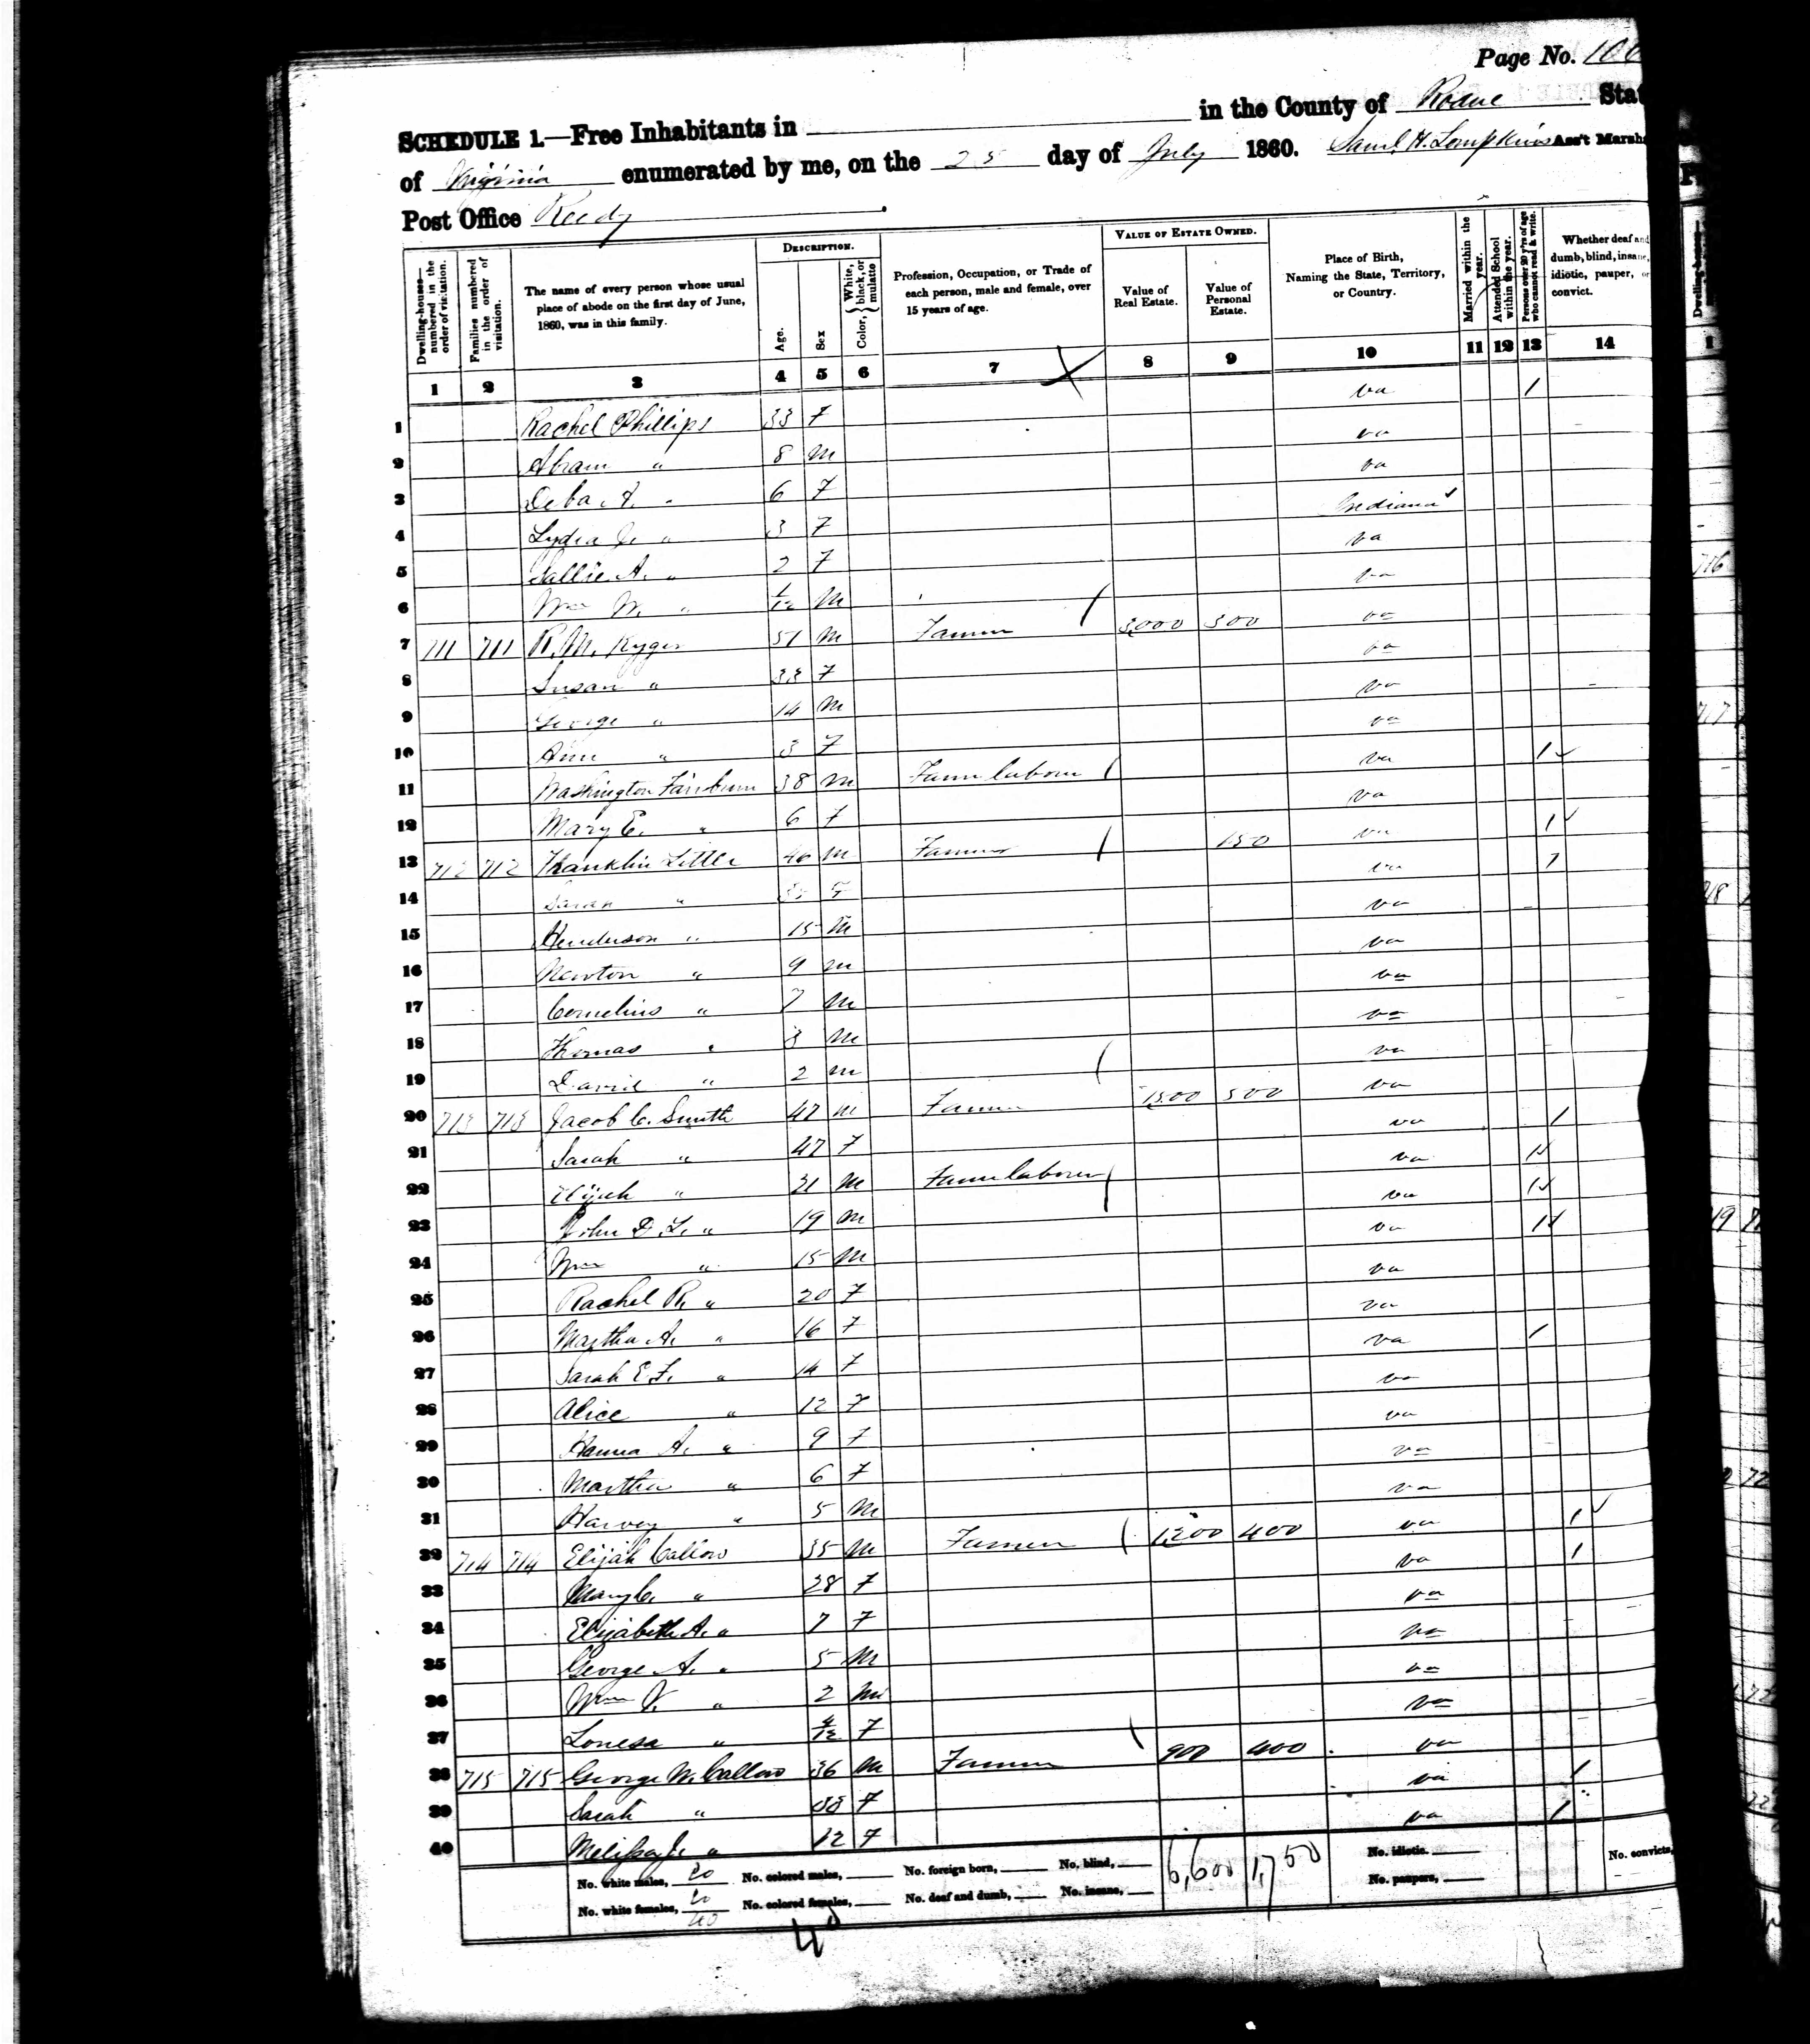 Page No. 10
SCHEDULE 1.—Free Inhabitants in in the County of Roane Stat
of Virginia enumerated by me, on the 25 day of July 1860. Saml. H. Tompkins Ass't Marsh
Post Office Reedy
DESCRIPTION. VALUE OF ESTATE OWNED.
Dwelling-houses— numbered in the order of visitation. Families numbered in the order of visitation. The name of every person whose usual place of abode on the first day of June, 1860, was in this family. Age. Sex Color, White, black, or mulatto Profession, Occupation, or Trade of each person, male and female, over 15 years of age. Value of Real Estate. Value of Personal Estate. Place of Birth, Naming the State, Territory, or Country. Married within the year. Attended School within the year. Persons over 20 y'rs of age who cannot read & write. Whether deaf and dumb, blind, insane, idiotic, pauper, or convict.
1 2 3 4 5 6 7 8 9 10 11 12 13 14
1 Rachel Phillips 33 F va 1
2 Abram " 8 M va
3 A. " 6 F va
4 Lydia J. " 3 F Indiana
5 Sallie A. " 2 F va
6 Wm W. " 1/12 M va
7 711 711 R. M. Kyger 51 M Farmer 3,000 500 va
8 Susan " 33 F va
9 George " 14 M va
10 Ann " 3 F va
11 Washington Fairburn 38 M Farm labour va 1
12 Mary E. " 6 F va
13 712 712 Franklin Little 46 M Farmer 150 va 1
14 Sarah " F va 1
15 Henderson " 15 M va
16 Newton " 9 M va
17 Cornelius " 7 M va
18 Thomas " 3 M va
19 David " 2 M va
20 713 713 Jacob C. Smith 47 M Farmer 1500 500 va
21 Sarah " 47 F va 1
22 Elijah " 21 M Farm labourer va 1
23 John D. L. " 19 M va 1
24 Wm " 15 M va 1
25 Rachel R. " 20 F va
26 Martha A. " 16 F va
27 Sarah E. F. " 14 F va 1
28 Alice " 12 F va
29 Hanna A. " 9 F va
30 Martha " 6 F va
31 Harvey " 5 M va
32 714 714 Elijah Callow 35 M Farmer 1,200 400 va 1
33 Mary C. " 28 F va 1
34 Elizabeth A. " 7 F va
35 George A. " 5 M va
36 Wm V. " 2 M va
37 Lonesa " 4/12 F va
38 715 715 George W. Callow 36 M Farmer 900 400 va
39 Sarah " 38 F va 1
40 Melissa J. " 12 F va 1
No. white males, 20 No. colored males, No. foreign born, No. blind, 6,600 1,750 No. idiotic.
No. white females, 20 No. colored females, No. deaf and dumb, No. insane, No. paupers, No. convicts,
40
40
716
717